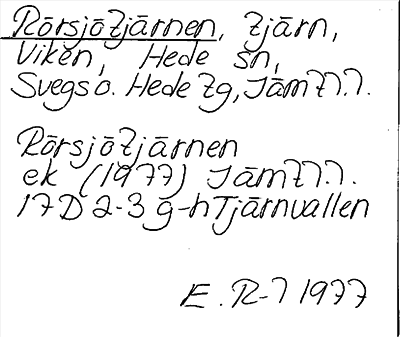 Rörsjötjärnen, tjärn,
Viken, Hede sn,
Svegs o. Hede tg, Jämtl.
Rörsjötjärnen
ek (1977) Jämtl.
17D 2-3 g-h Tjärnvallen
E. R-l 1977